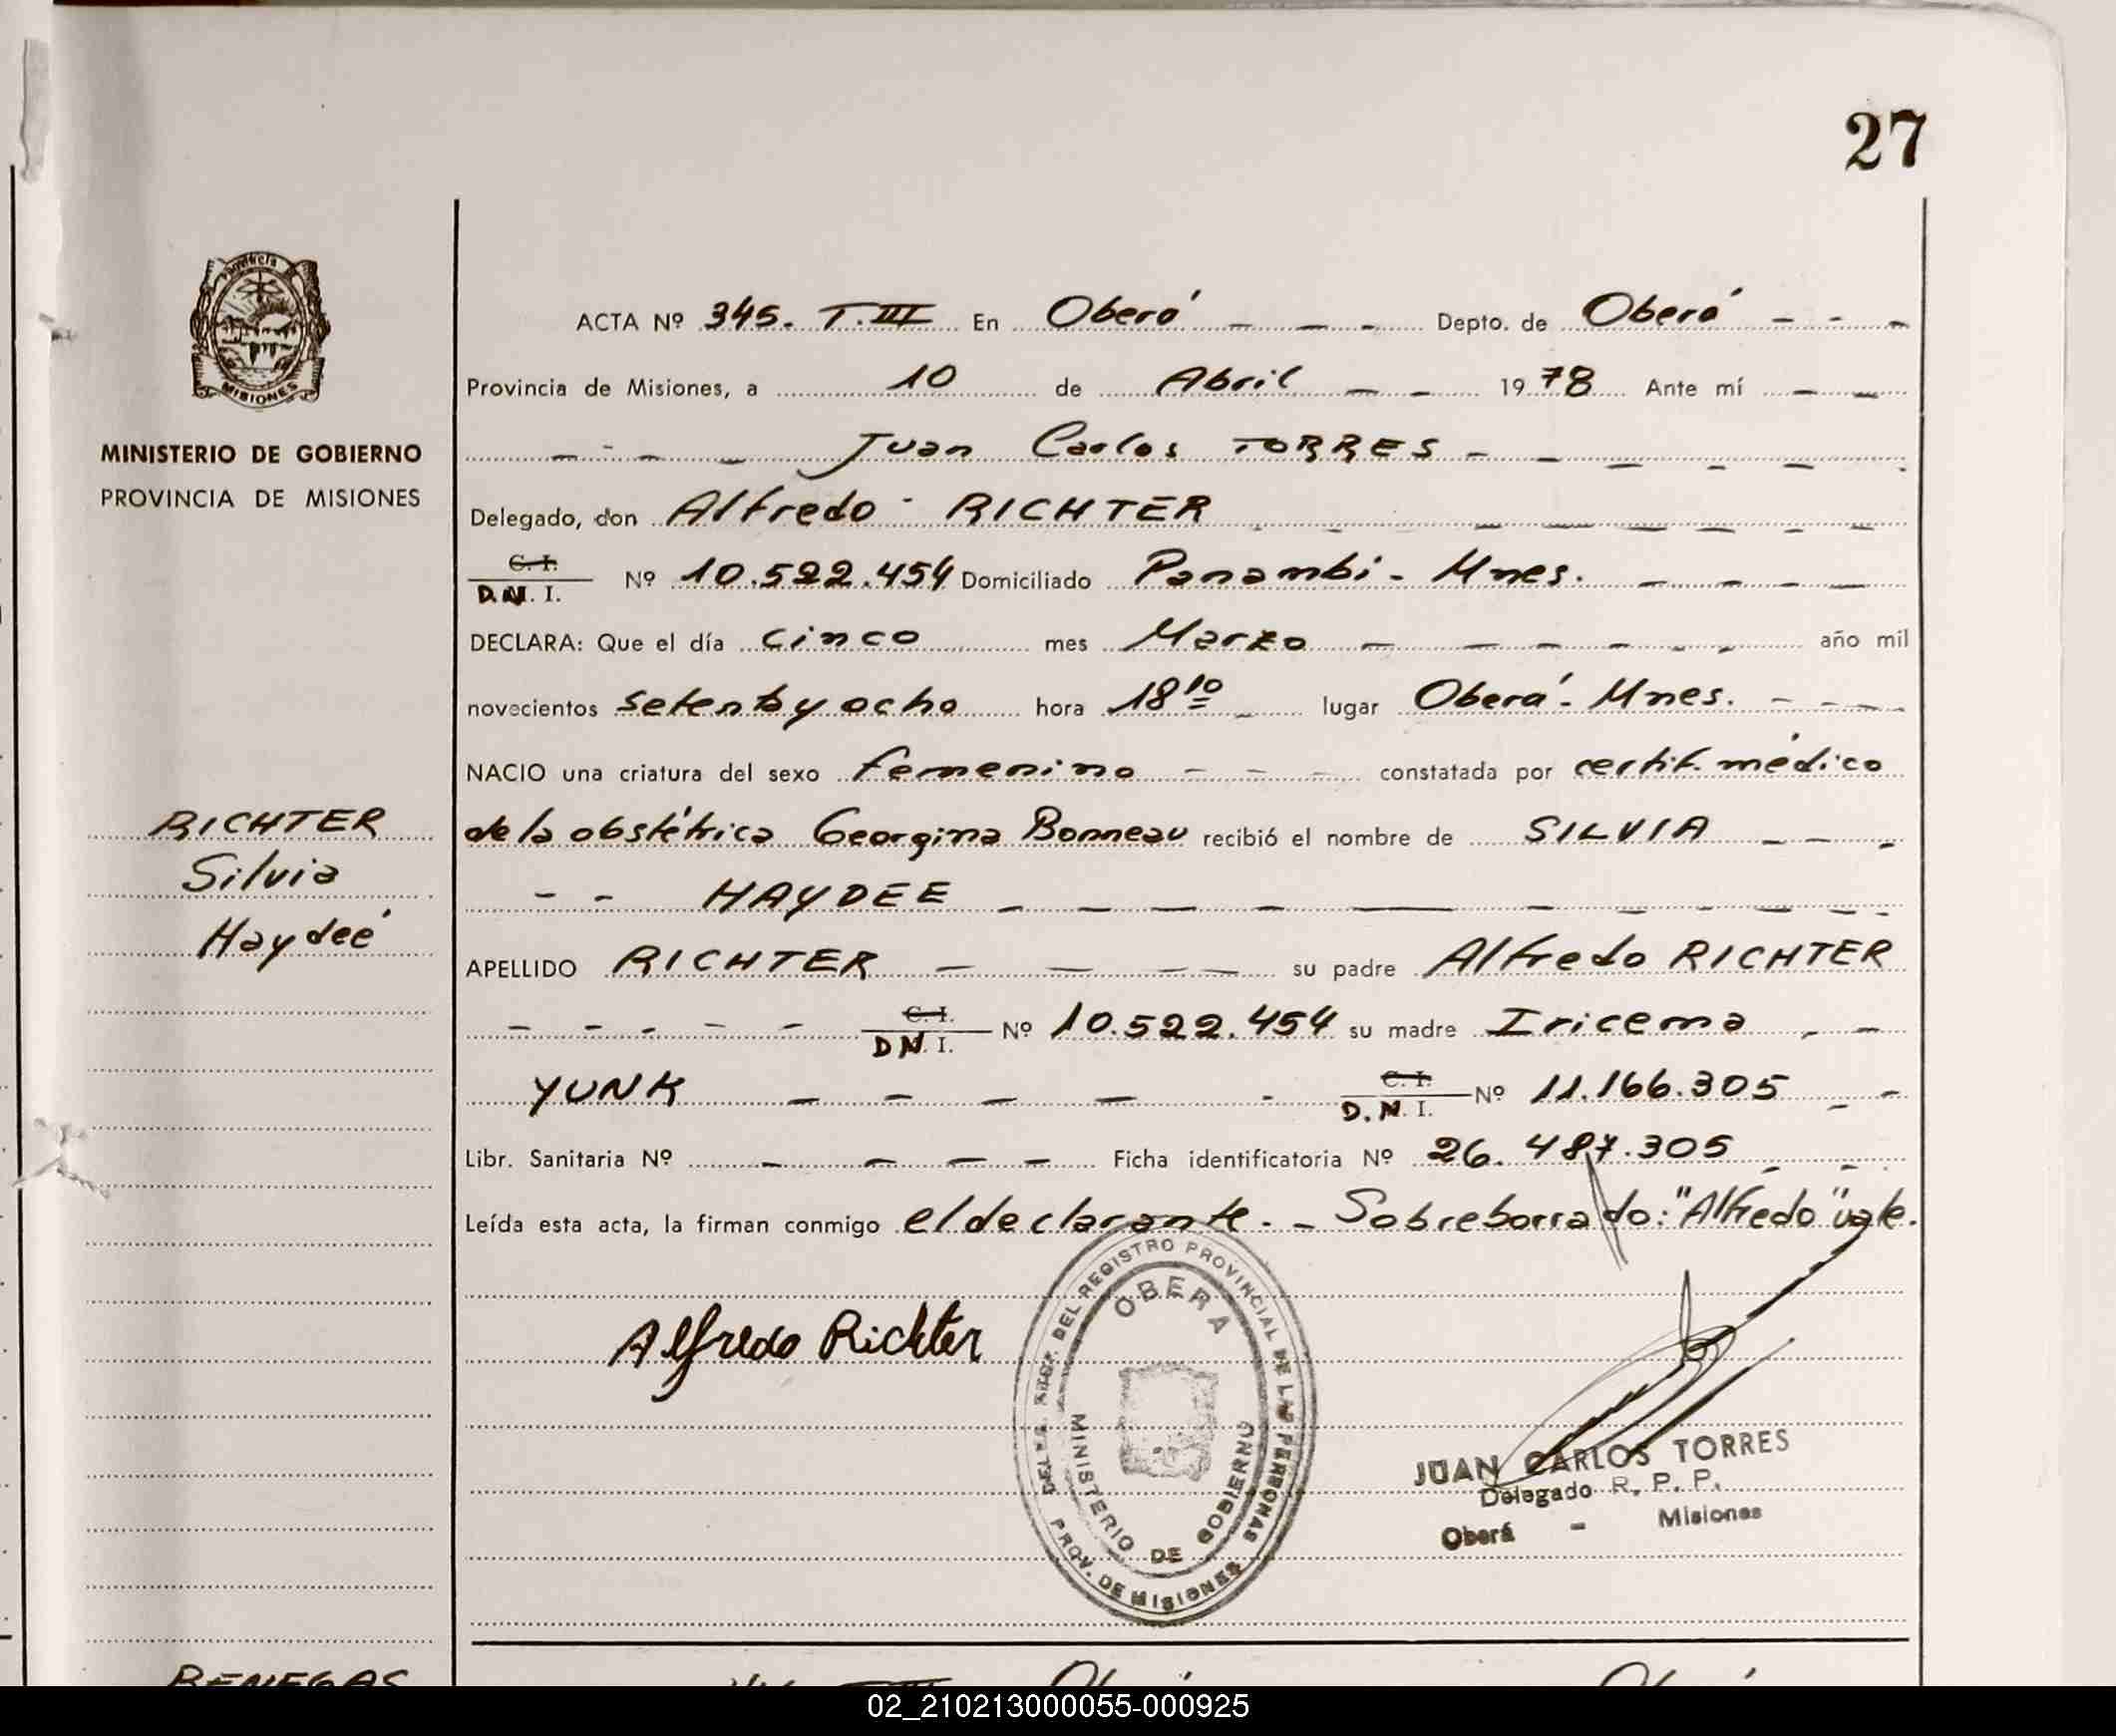 27
Provincia
MISIONES
MINISTERIO DE GOBIERNO
PROVINCIA DE MISIONES
RICHTER
Silvia
Haydeé
ACTA Nº 345. T.III En Oberá Depto. de Oberá
Provincia de Misiones, a 10 de Abril 1978 Ante mí
Juan Carlos TORRES
Delegado, don Alfredo RICHTER
C.I.
D.N.I. Nº 10.522.454 Domiciliado Panambi - Mnes.
DECLARA: Que el día cinco mes Marzo año mil
novecientos setenta y ocho hora 18 10 lugar Oberá - Mnes.
NACIO una criatura del sexo femenino constatada por certif. médico
de la obstétrica Georgina Bonneau recibió el nombre de SILVIA
HAYDEE
APELLIDO RICHTER su padre Alfredo RICHTER
C.I.
D.N.I. Nº 10.522.454 su madre Iricema
YUNK C.I.
D.N.I. Nº 11.166.305
Libr. Sanitaria Nº Ficha identificatoria Nº 26.487.305
Leída esta acta, la firman conmigo el declarante. - Sobreborrado: "Alfredo" vale.
Alfredo Richter
DEL REGISTRO PROVINCIAL DE LAS PERSONAS
OBERA
MINISTERIO DE GOBIERNO
PROV. DE MISIONES
JUAN CARLOS TORRES
Delegado R. P. P.
Oberá - Misiones
BENEGAS
02_210213000055-000925